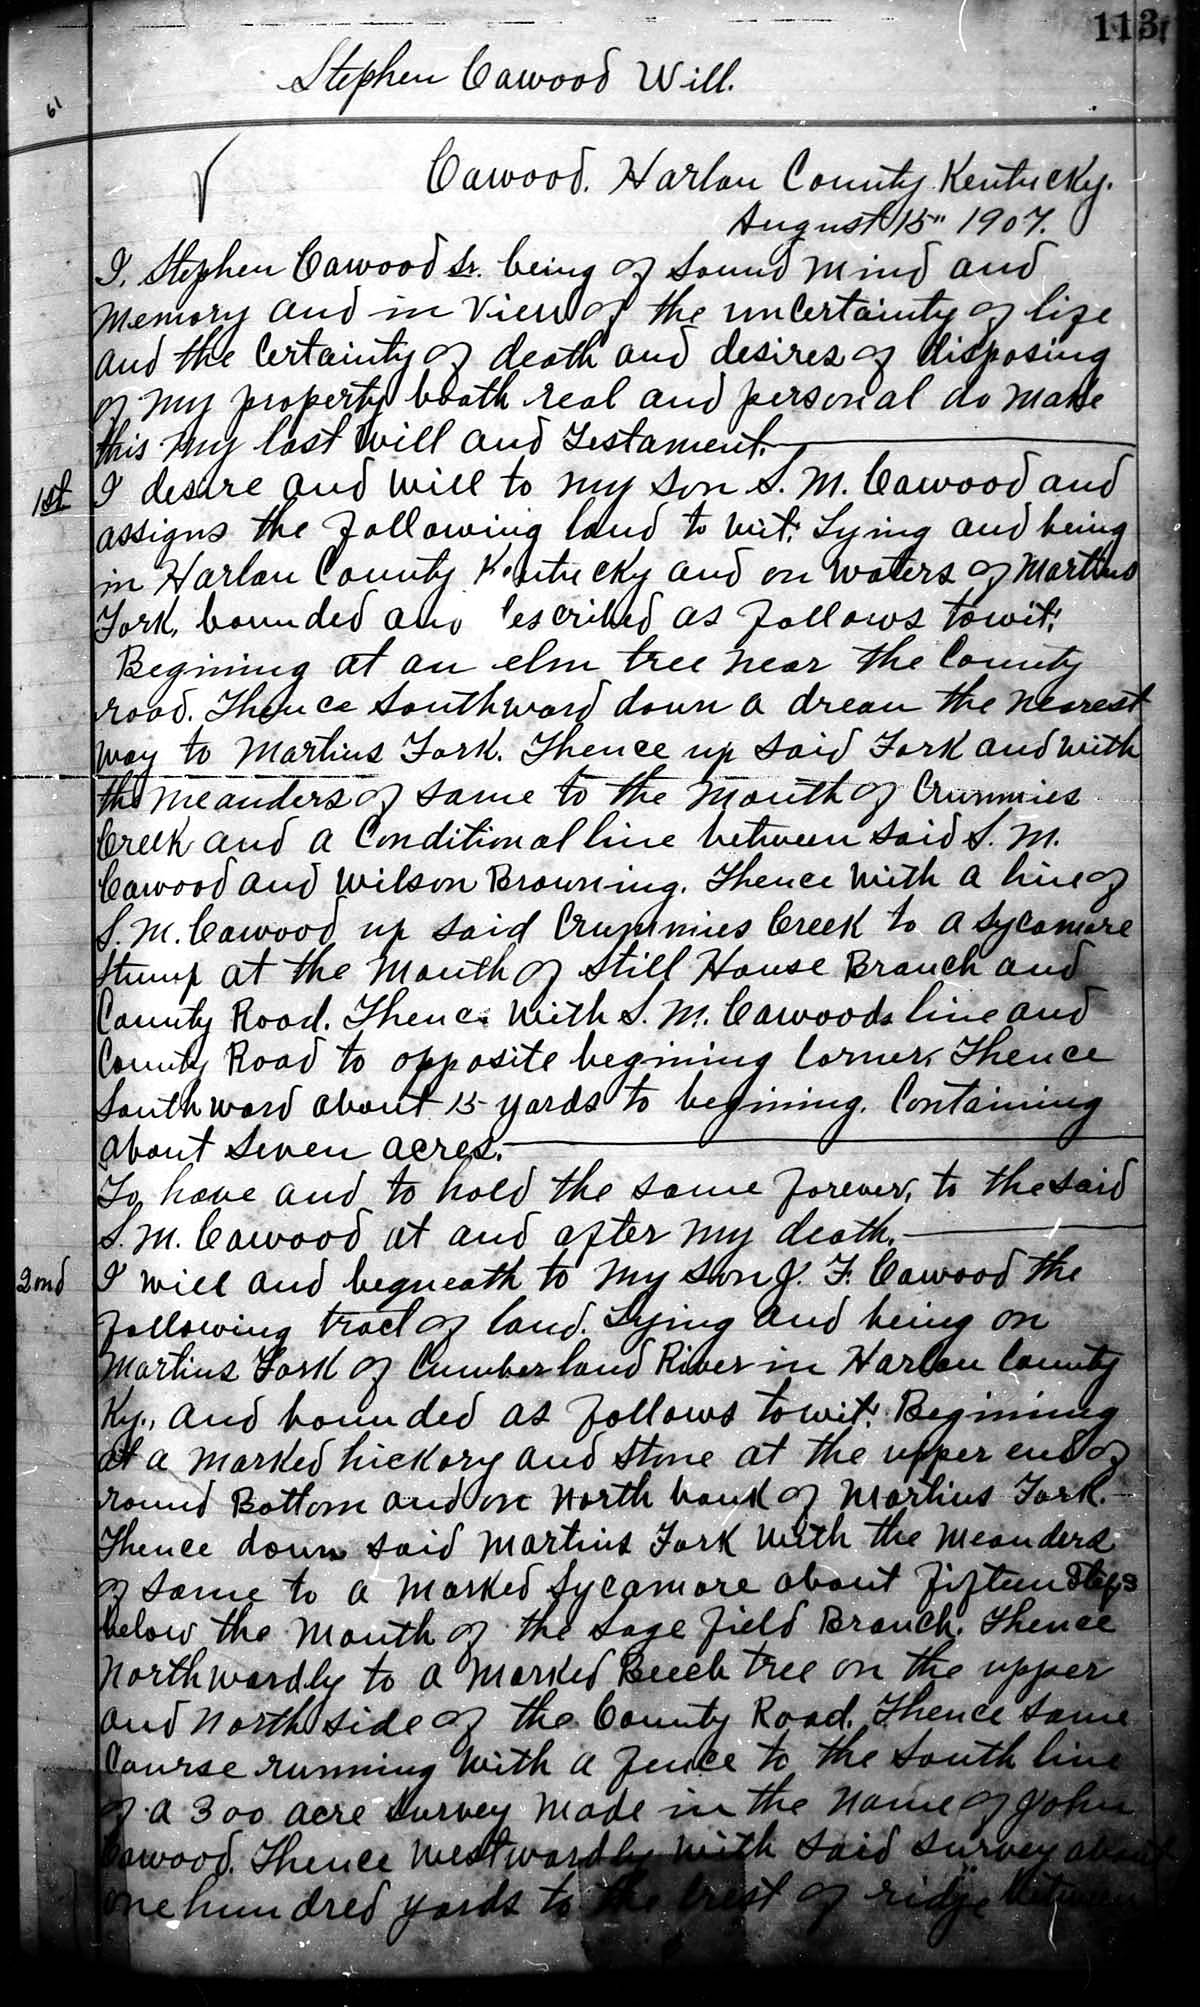 113
Stephen Cawood Will.
61
Cawood. Harlan County Kentucky.
August 15" 1907.
I, Stephen Cawood Sr. being of sound mind and
memory and in view of the uncertainty of life
and the certainty of death and desires of disposing
of my property boath real and personal do make
this my last will and Testament.
1st I desire and will to my son S. M. Cawood and
assigns the following land to wit: Lying and being
in Harlan County Kentucky and on waters of Martins
Fork, bounded and described as follows towit:
Begining at an elm tree near the County
road. Thence Southward down a drean the nearest
way to Martins Fork. Thence up said Fork and with
the meanders of same to the mouth of Crummies
Creek and a Conditional line between said S. M.
Cawood and Wilson Browning. Thence with a line of
S. M. Cawood up said Crummies Creek to a sycamore
stump at the mouth of Still House Branch and
County Road. Thence with S. M. Cawoods line and
County Road to opposite begining corner. Thence
Southward about 15 yards to begining. Containing
about seven acres.
To have and to hold the same forever, to the said
S. M. Cawood at and after my death.
2nd I will and begneath to my son J. F. Cawood the
following tract of land. Lying and being on
Martins Fork of Cumberland River in Harlan County
Ky., and bounded as follows towit: Begining
at a marked hickory and stone at the upper end of
round Bottom and on north bank of Martins Fork.
Thence down said Martins Fork with the meanders
of same to a marked Sycamore about fifteen steps
below the mouth of the sage field Branch. Thence
Northwardly to a marked Beech tree on the upper
and north side of the County Road. Thence same
course running with a fence to the south line
of a 300 acre survey made in the name of John
Cawood. Thence westwardly with said survey about
one hundred yards to the crest of ridge between